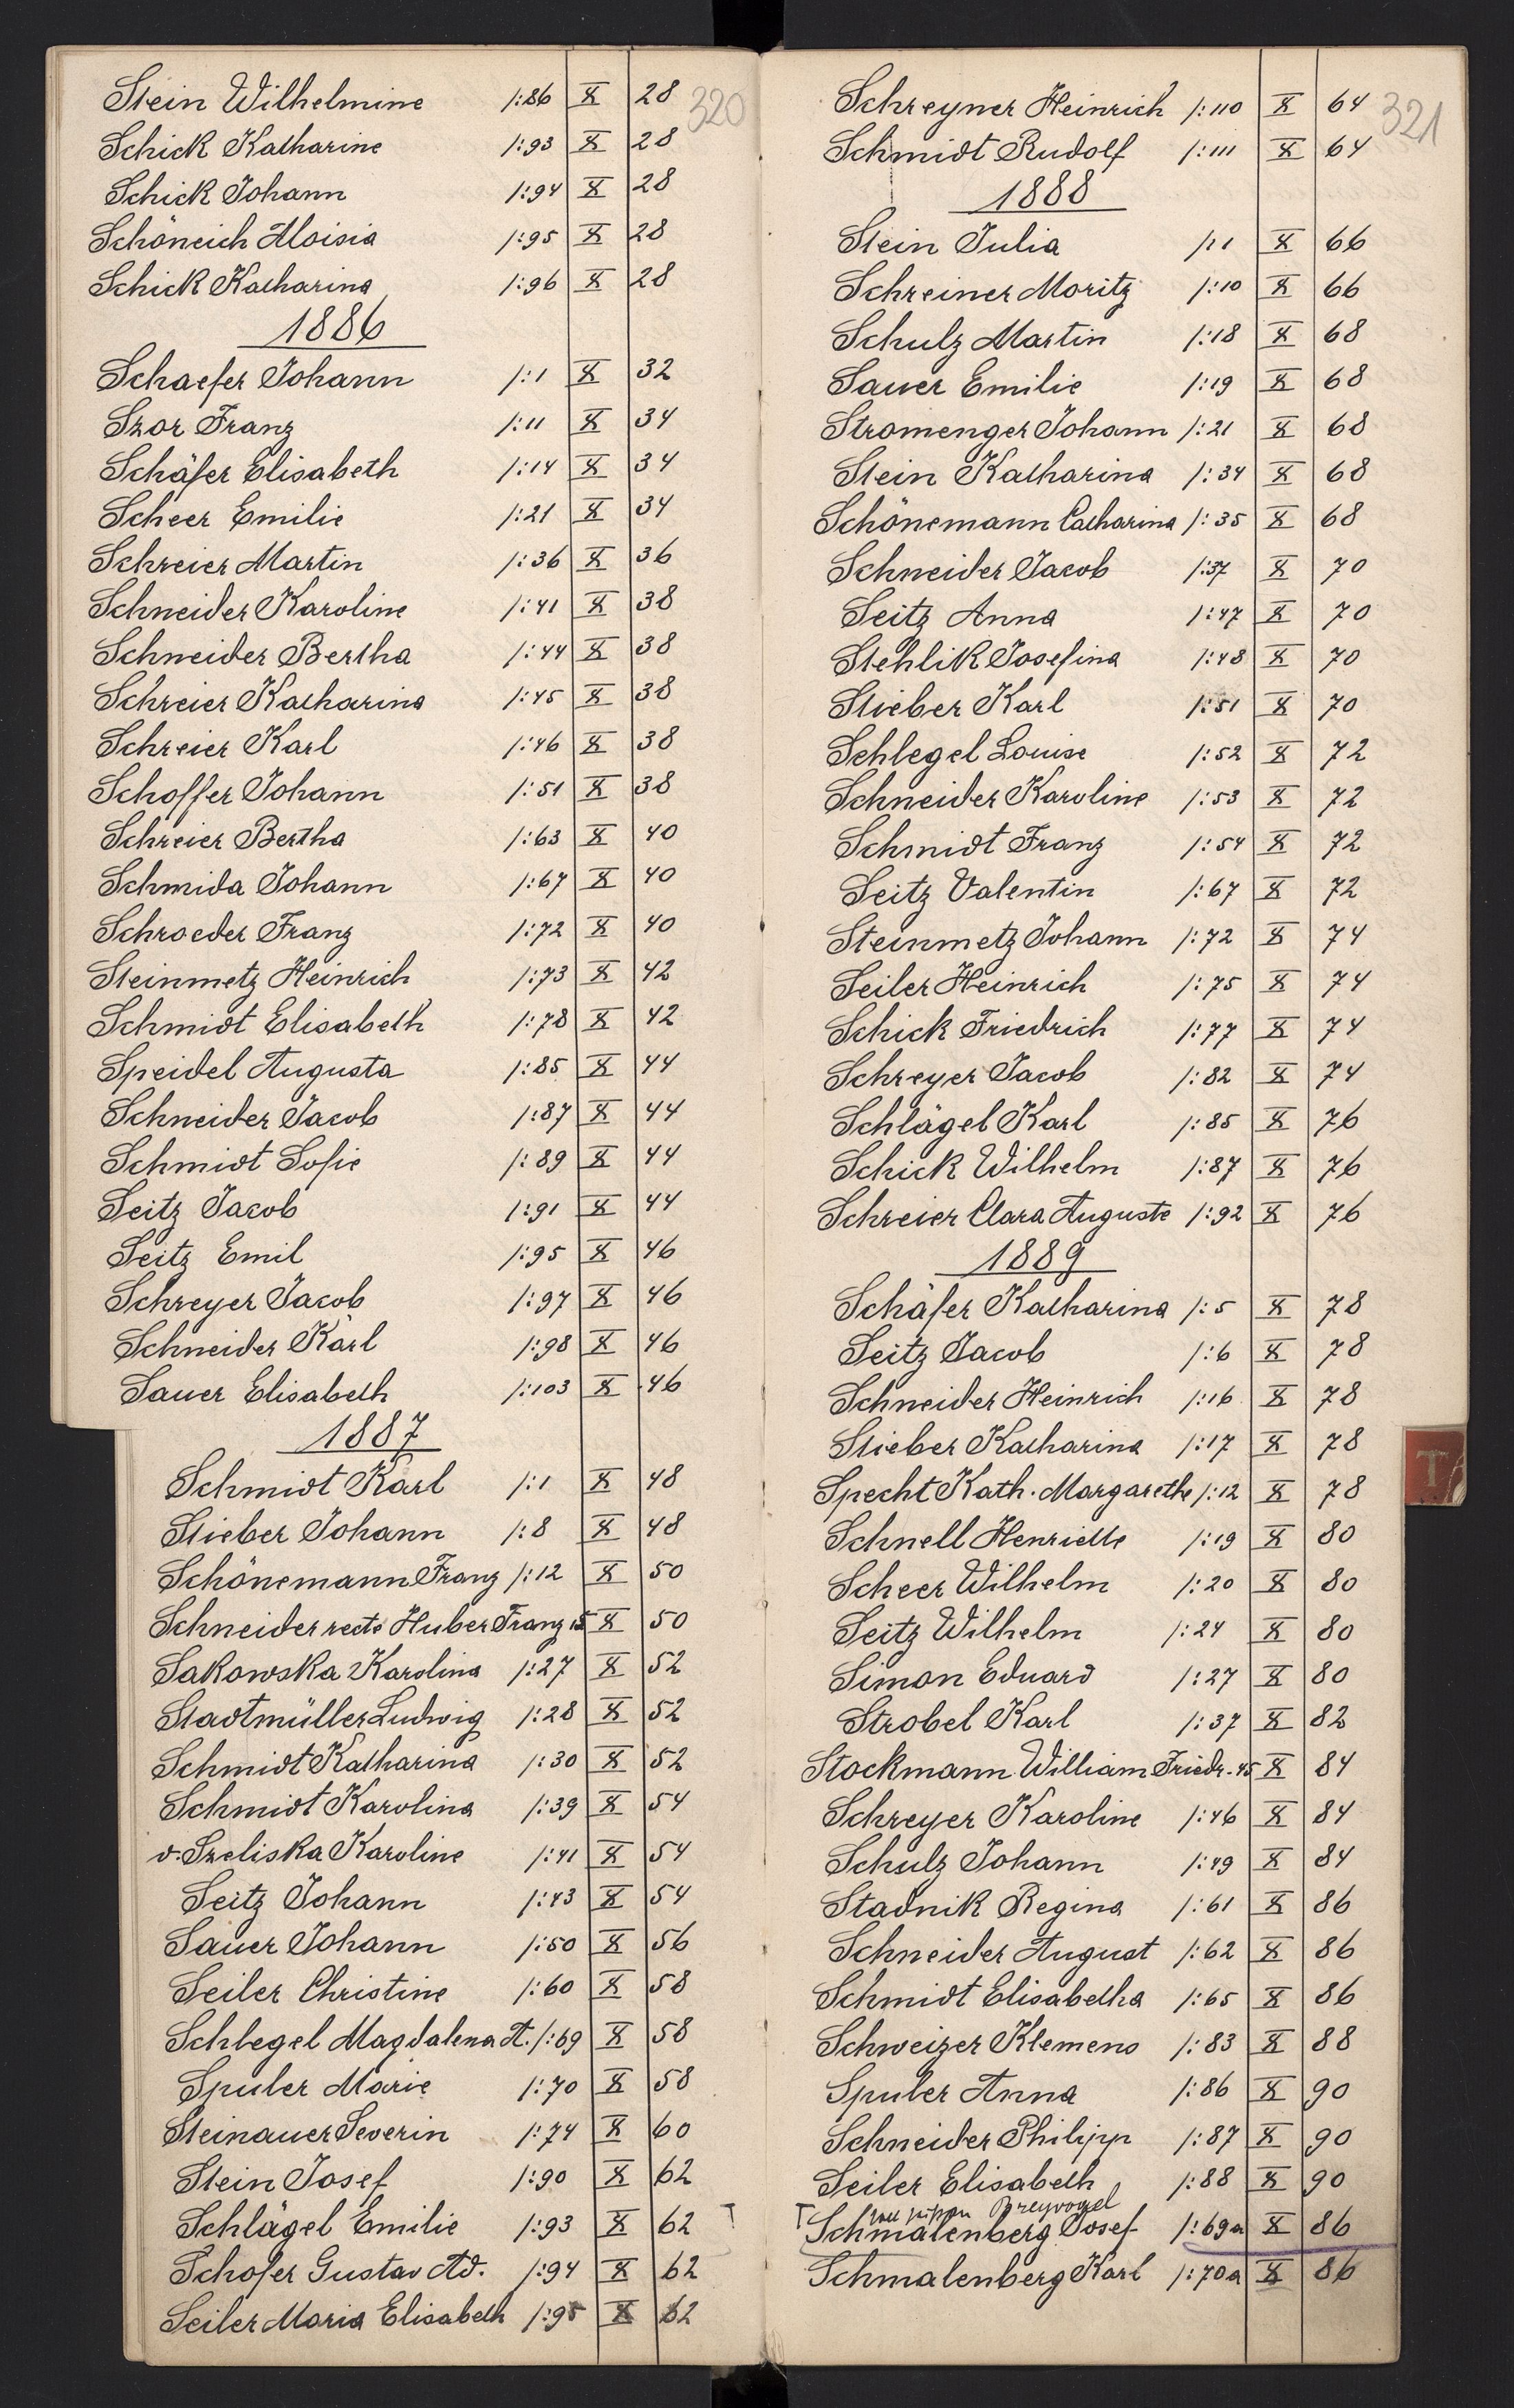 320
Stein Wilhelmine 1:86 X 28
Schick Katharine 1:93 X 28
Schick Johann 1:94 X 28
Schöneich Aloisia 1:95 X 28
Schick Katharina 1:96 X 28
1886
Schaefer Johann 1:1 X 32
Szor Franz 1:11 X 34
Schäfer Elisabeth 1:14 X 34
Scheer Emilie 1:21 X 34
Schreier Martin 1:36 X 36
Schneider Karoline 1:41 X 38
Schneider Bertha 1:44 X 38
Schreier Katharina 1:45 X 38
Schreier Karl 1:46 X 38
Schoffer Johann 1:51 X 38
Schreier Bertha 1:63 X 40
Schmida Johann 1:67 X 40
Schroeder Franz 1:72 X 40
Steinmetz Heinrich 1:73 X 42
Schmidt Elisabeth 1:78 X 42
Speidel Augusta 1:85 X 44
Schneider Jacob 1:87 X 44
Schmidt Sofie 1:89 X 44
Seitz Jacob 1:91 X 44
Seitz Emil 1:95 X 46
Schreyer Jacob 1:97 X 46
Schneider Karl 1:98 X 46
Sauer Elisabeth 1:103 X 46
1887
Schmidt Karl 1:1 X 48
Stieber Johann 1:8 X 48
Schönemann Franz 1:12 X 50
Schneider recte Huber Franz 15 X 50
Sakowska Karolina 1:27 X 52
Stadtmüller Ludwig 1:28 X 52
Schmidt Katharina 1:30 X 52
Schmidt Karolina 1:39 X 54
v. Szeliska Karoline 1:41 X 54
Seitz Johann 1:43 X 54
Sauer Johann 1:50 X 56
Seiler Christine 1:60 X 58
Schlegel Magdalena A. 1:69 X 58
Spuler Marie 1:70 X 58
Steinauer Severin 1:74 X 60
Stein Josef 1:90 X 62
Schlägel Emilie 1:93 X 62
Schofer Gustav Ad. 1:94 X 62
Seiler Maria Elisabeth 1:95 X 62
321
Schreyner Heinrich 1:110 X 64
Schmidt Rudolf 1:111 X 64
1888
Stein Julia 1:1 X 66
Schreiner Moritz 1:10 X 66
Schulz Martin 1:18 X 68
Sauer Emilie 1:19 X 68
Stromenger Johann 1:21 X 68
Stein Katharina 1:34 X 68
Schönemann Catharina 1:35 X 68
Schneider Jacob 1:37 X 70
Seitz Anna 1:47 X 70
Stehlik Josefina 1:48 X 70
Stieber Karl 1:51 X 70
Schlegel Louise 1:52 X 72
Schneider Karoline 1:53 X 72
Schmidt Franz 1:54 X 72
Seitz Valentin 1:67 X 72
Steinmetz Johann 1:72 X 74
Seiler Heinrich 1:75 X 74
Schick Friedrich 1:77 X 74
Schreyer Jacob 1:82 X 74
Schlägel Karl 1:85 X 76
Schick Wilhelm 1:87 X 76
Schreier Clara Auguste 1:92 X 76
1889
Schäfer Katharina 1:5 X 78
Seitz Jacob 1:6 X 78
Schneider Heinrich 1:16 X 78
Stieber Katharina 1:17 X 78
Specht Kath. Margarethe 1:12 X 78
T
Schnell Henriette 1:19 X 80
Scheer Wilhelm 1:20 X 80
Seitz Wilhelm 1:24 X 80
Simon Eduard 1:27 X 80
Strobel Karl 1:37 X 82
Stockmann William Friedr. 45 X 84
Schreyer Karoline 1:46 X 84
Schulz Johann 1:49 X 84
Stadnik Regina 1:61 X 86
Schneider August 1:62 X 86
Schmidt Elisabetha 1:65 X 86
Schweizer Klemens 1:83 X 88
Spuler Anna 1:86 X 90
Schneider Philipp 1:87 X 90
Seiler Elisabeth 1:88 X 90
Breyvogel
Schmalenberg Josef 1:69a X 86
Schmalenberg Karl 1:70a X 86